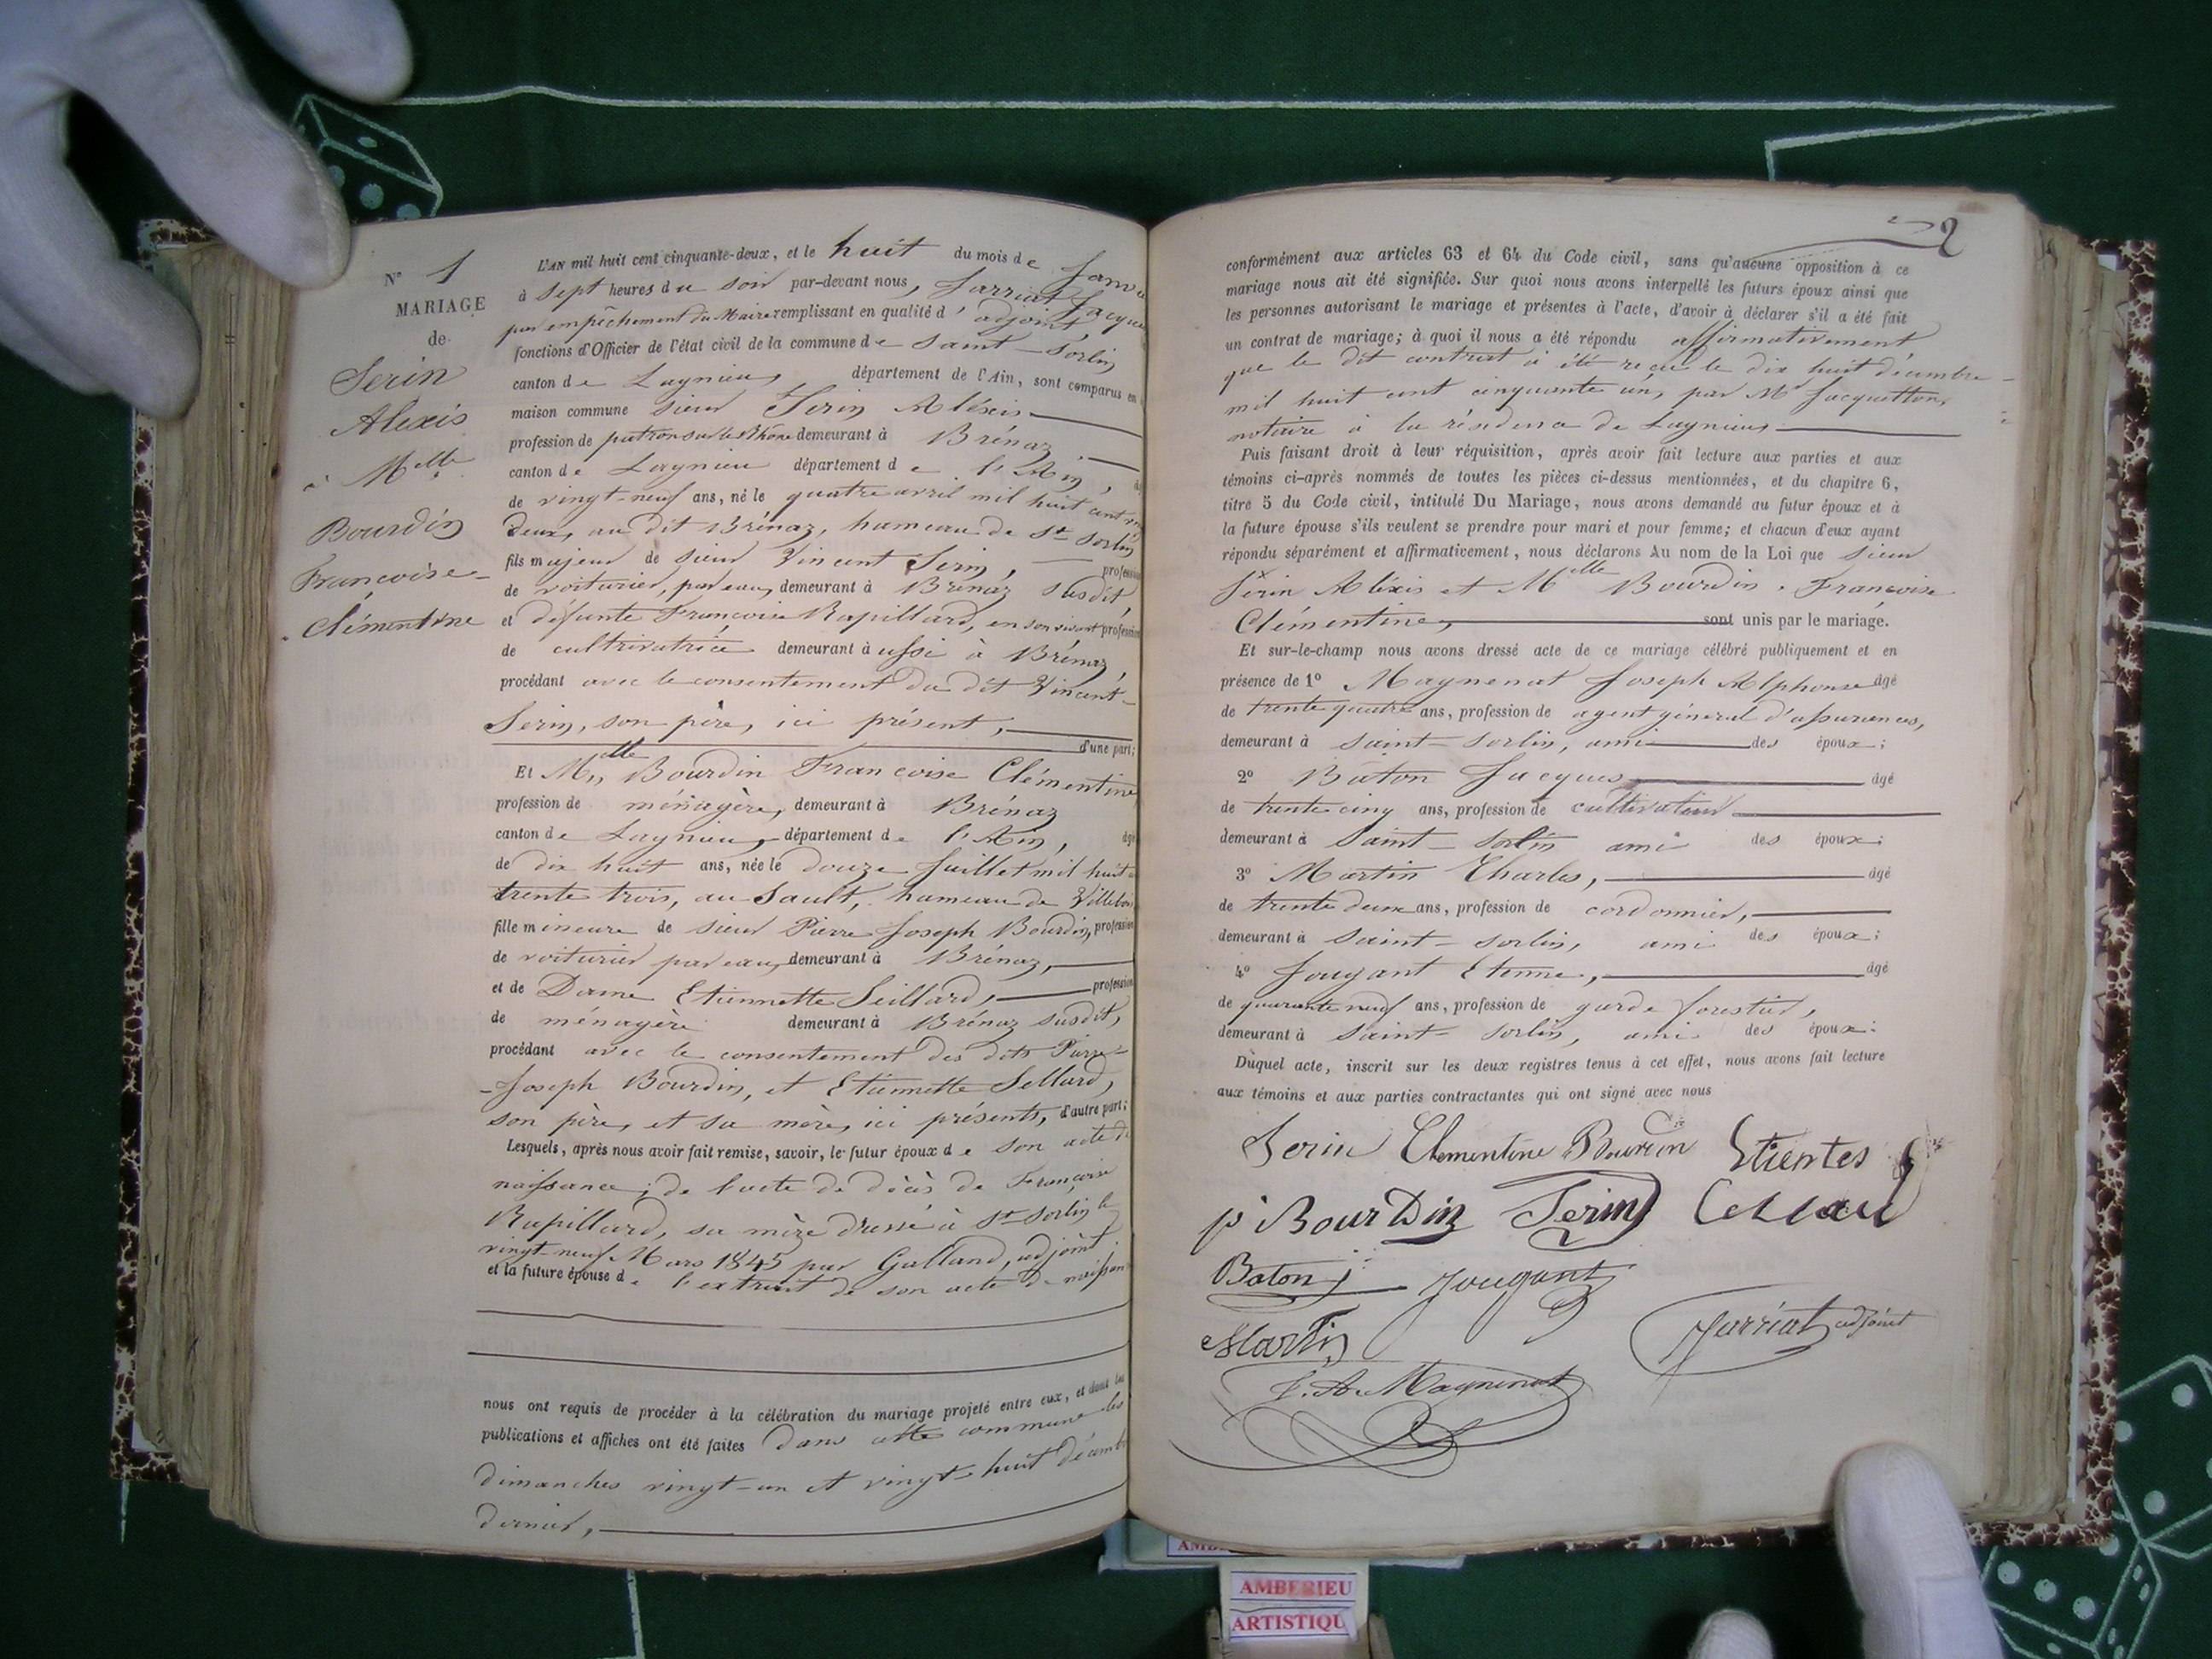 N° 1
MARIAGE
de
Serin
Alexis
à Melle
Bourdin
Françoise-
Clémentine
L'AN mil huit cent cinquante-deux, et le huit du mois de Janvi
à sept heures du soir par-devant nous, Jarriat Jacques
par empêchement du Maire remplissant en qualité d'adjoint
fonctions d'Officier de l'état civil de la commune de Saint-Sorlin
canton de Lagnieu, département de l'Ain, sont comparus en
maison commune sieur Serin Aléxis
profession de patron sur le Rhône demeurant à Brénaz
canton de Lagnieu département de l'Ain,
de vingt-neuf ans, né le quatre avril mil huit cent
deux, au dit Brénaz, hameau de St Sorlin
fils majeur de sieur Vincent Serin, profession
de voiturier, par eau, demeurant à Brénaz susdit,
et défunte Françoise Rapillard, en son vivant profession
de cultivatrice demeurant aussi à Brénaz,
procédant avec le consentement du dit Vincent-
Serin, son père, ici présent,
d'une part;
Et Melle Bourdin Françoise Clémentine
profession de ménagère, demeurant à Brénaz
canton de Lagnieu, département de l'Ain, âgé
de dix huit ans, née le douze Juillet mil huit
trente trois, au Sault, hameau de Villebois
fille mineure de sieur Pierre Joseph Bourdin, profession
de voiturier par eau, demeurant à Brénaz,
et de Dame Etiennette Seillard, profession
de ménagère demeurant à Brénaz susdit,
procédant avec le consentement des dits Pierre-
-Joseph Bourdin, et Etiennette Sellard,
son père, et sa mère, ici présents, d'autre part;
Lesquels, après nous avoir fait remise, savoir, le futur époux de son acte de
naissance; de l'acte de décès de Françoise
Rapillard, sa mère dressé à St-Sorlin le
vingt neuf Mars 1845 par Galland, adjoint
et la future épouse de l'extrait de son acte de naissan
nous ont requis de procéder à la célébration du mariage projeté entre eux, et dont les
publications et affiches ont été faites dans cette commune les
dimanches vingt-un et vingt-huit décemb
dernier,
2
conformément aux articles 63 et 64 du Code civil, sans qu'aucune opposition à ce
mariage nous ait été signifiée. Sur quoi nous avons interpellé les futurs époux ainsi que
les personnes autorisant le mariage et présentes à l'acte, d'avoir à déclarer s'il a été fait
un contrat de mariage; à quoi il nous a été répondu affirmativement
que le dit contrat à été reçu le dix huit décembre
mil huit cent cinquante un, par Me Jacquetton,
notaire à la résidence de Lagnieu
Puis faisant droit à leur réquisition, après avoir fait lecture aux parties et aux
témoins ci-après nommés de toutes les pièces ci-dessus mentionnées, et du chapitre 6,
titre 5 du Code civil, intitulé Du Mariage, nous avons demandé au futur époux et à
la future épouse s'ils veulent se prendre pour mari et pour femme; et chacun d'eux ayant
répondu séparément et affirmativement, nous déclarons Au nom de la Loi que sieur
Serin Aléxis et Melle Bourdin Françoise
Clémentine, sont unis par le mariage.
Et sur-le-champ nous avons dressé acte de ce mariage célébré publiquement et en
présence de 1° Magnenat Joseph Alphonse âgé
de trente quatre ans, profession de agent général d'assurances,
demeurant à Saint-Sorlin, ami des époux;
2° Bâton Jacques âgé
de trente cinq ans, profession de cultivateur
demeurant à Saint-Sorlin ami des époux;
3° Martin Charles, âgé
de trente deux ans, profession de cordonnier,
demeurant à Saint-Sorlin, ami des époux;
4° Jougant Etienne, âgé
de quarante neuf ans, profession de garde forestier,
demeurant à Saint-Sorlin, ami des époux:
Duquel acte, inscrit sur les deux registres tenus à cet effet, nous avons fait lecture
aux témoins et aux parties contractantes qui ont signé avec nous
Serin Clementine Bourdin Etientes
p j BourDin Serin Cellard
Baton j Jougant
Martin Jarriat adjoint
J. A. Magnenat
AMBERIEU
ARTISTIQU